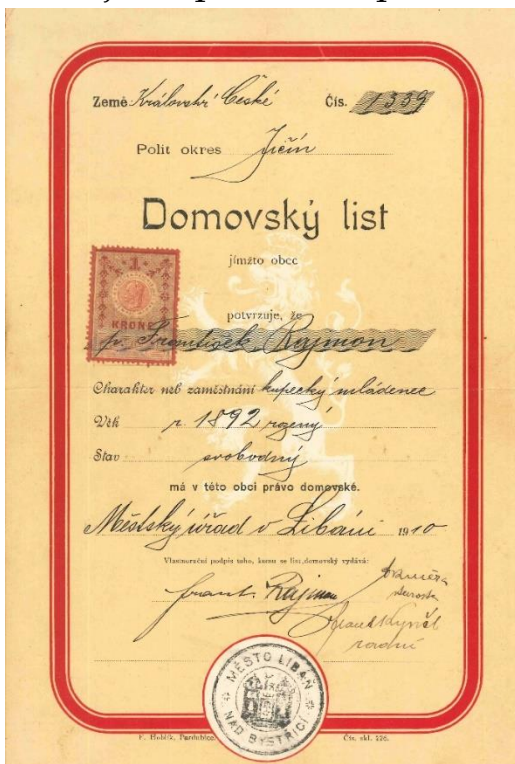 Země Králowství České Čís. 1339
Polit okres Jičín
Domovský list
jímžto obec
potvrzuje, že
p. František Rajmon
Charakter neb zaměstnání kupecký mládenec
Věk r. 1892 rozený
Stav svobodný
má v této obci právo domovské.
Městský úřad v Libáni 1910
Vlastnoruční podpis toho, komu se list domovský vydává:
Frant. Rajmon
starosta
radní
1
KRONE
MĚSTO LIBÁŇ
NAD BYSTŘICÍ
F. Hoblík, Pardubice.
Čís. skl. 226.